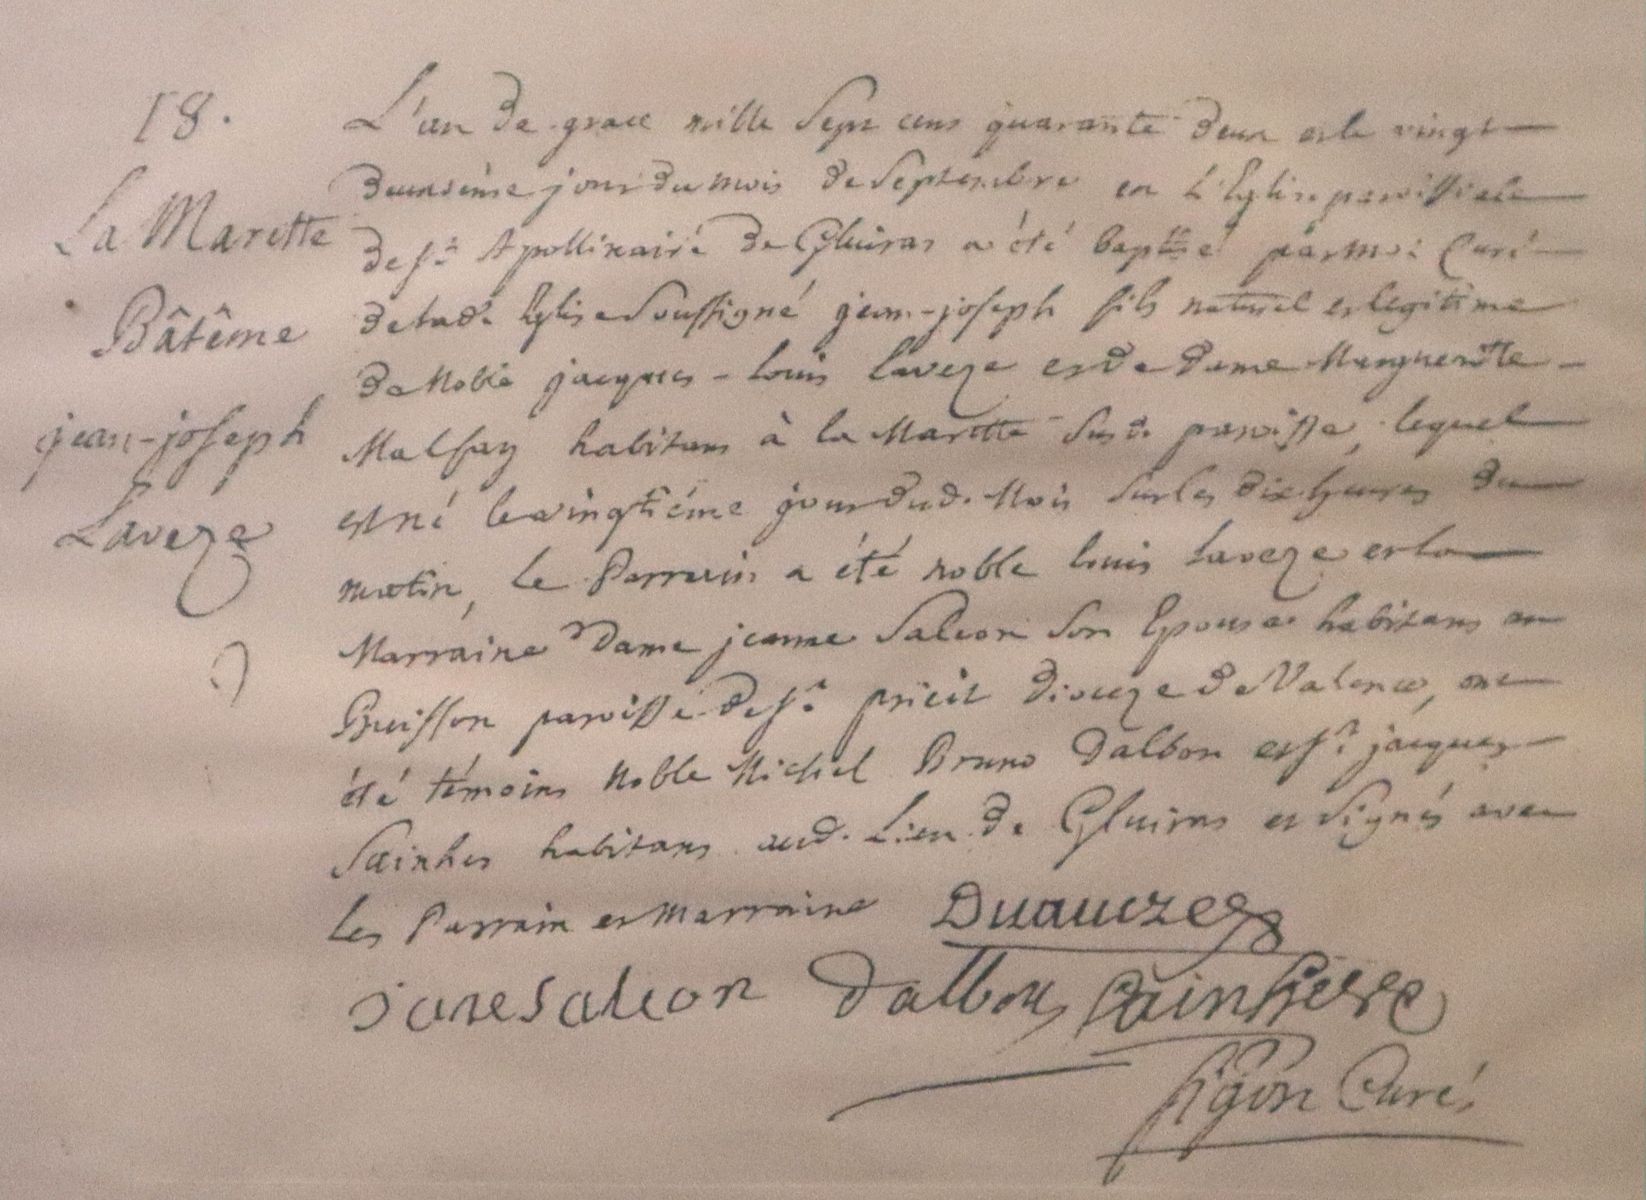 18.
La Marette
Bâtême
jean-joseph
Laveze
L'an De grace mille Sept cens quarante deux et le vingt
deuxieme jour du mois de Septembre en L'Eglise paroissiale
de St Apollinaire de Gluiras a été baptisé par moi Curé
de lad. Eglise Soussigné jean-joseph fils naturel et legitime
de Noble jacques-Louis Laveze et de dame Margueritte
Malfay habitans à la Marette susd. paroisse, lequel
est né le vingtiéme jour dud. Mois sur les dix heures du
matin, le Parrain a été noble louis Laveze et la
Marraine Dame jeanne Saleon son Epouse habitans au
Buisson paroisse de St prieit Dioceze de Valence, ont
été témoins Noble Michel Bruno Dalbon et Sr jacques
Sainhes habitans aud. Lieu de Gluiras et signés avec
les Parrain et marraine
jane Saleon Dalbon
Curé